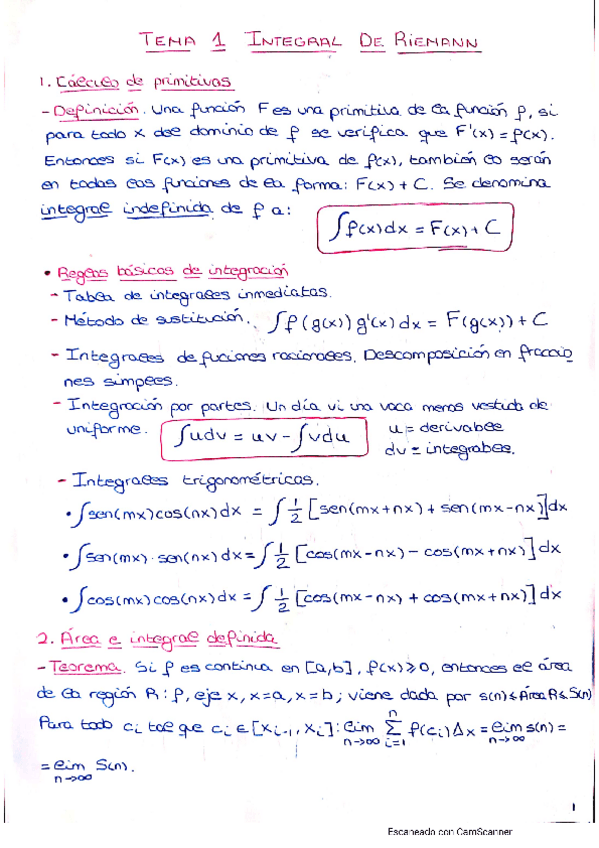 TEMA 1 INTEGRAL DE RIEMANN
1. Cálculo de primitivas
- Definición. Una función F es una primitiva de la función f, si
para todo x del dominio de f se verifica que F'(x) = f(x).
Entonces si F(x) es una primitiva de f(x), también lo serán
en todas las funciones de la forma: F(x) + C. Se denomina
integral indefinida de f a: ∫f(x)dx = F(x) + C
• Reglas básicas de integración
- Tabla de integrales inmediatas.
- Método de sustitución. ∫f(g(x)) g'(x) dx = F(g(x)) + C
- Integrales de fuciones racionales. Descomposición en fraccio
nes simples.
- Integración por partes. Un día vi una vaca menos vestida de
uniforme. ∫udv = uv - ∫vdu u = derivable
dv = integrable.
- Integrales trigonométricas.
• ∫sen(mx)cos(nx)dx = ∫ 1/2 [sen(mx+nx) + sen(mx-nx)]dx
• ∫sen(mx)·sen(nx)dx = ∫ 1/2 [cos(mx-nx) - cos(mx+nx)]dx
• ∫cos(mx)cos(nx)dx = ∫ 1/2 [cos(mx-nx) + cos(mx+nx)]dx
2. Área e integral definida
- Teorema. Si f es continua en [a,b], f(x) ≥ 0, entonces el área
de la región R: f, eje x, x=a, x=b; viene dada por s(n) ≤ Área R ≤ S(n)
Para todo ci tal que ci ∈ [xi-1, xi]: lim n→∞ Σ i=1 n f(ci) Δx = lim n→∞ s(n) =
= lim n→∞ S(n).
1
Escaneado con CamScanner